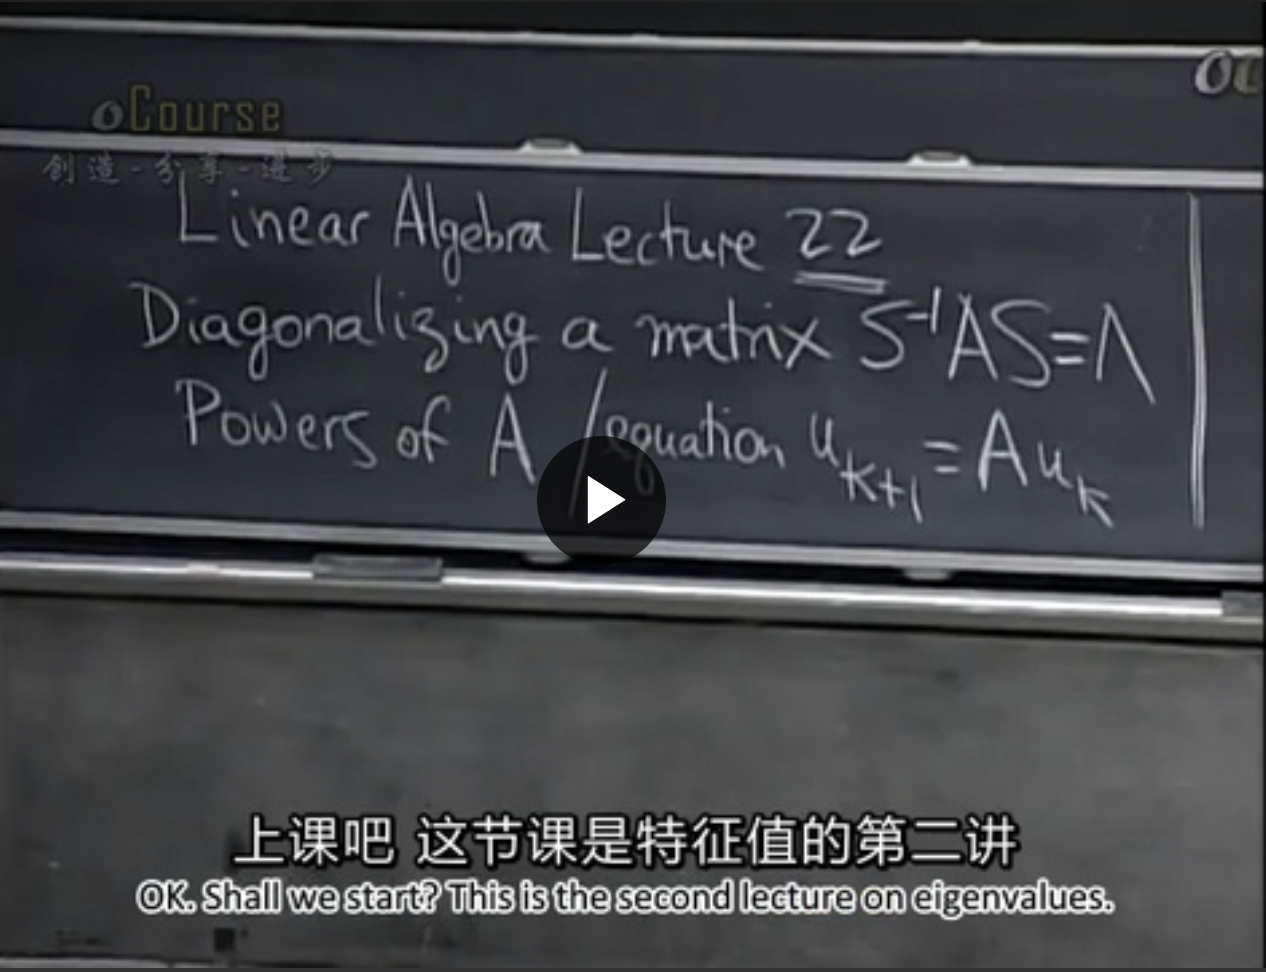 oCourse
创造-分享-进步
Linear Algebra Lecture 22
Diagonalizing a matrix S⁻¹AS=Λ
Powers of A / equation u_{k+1} = A u_k
上课吧 这节课是特征值的第二讲
OK. Shall we start? This is the second lecture on eigenvalues.